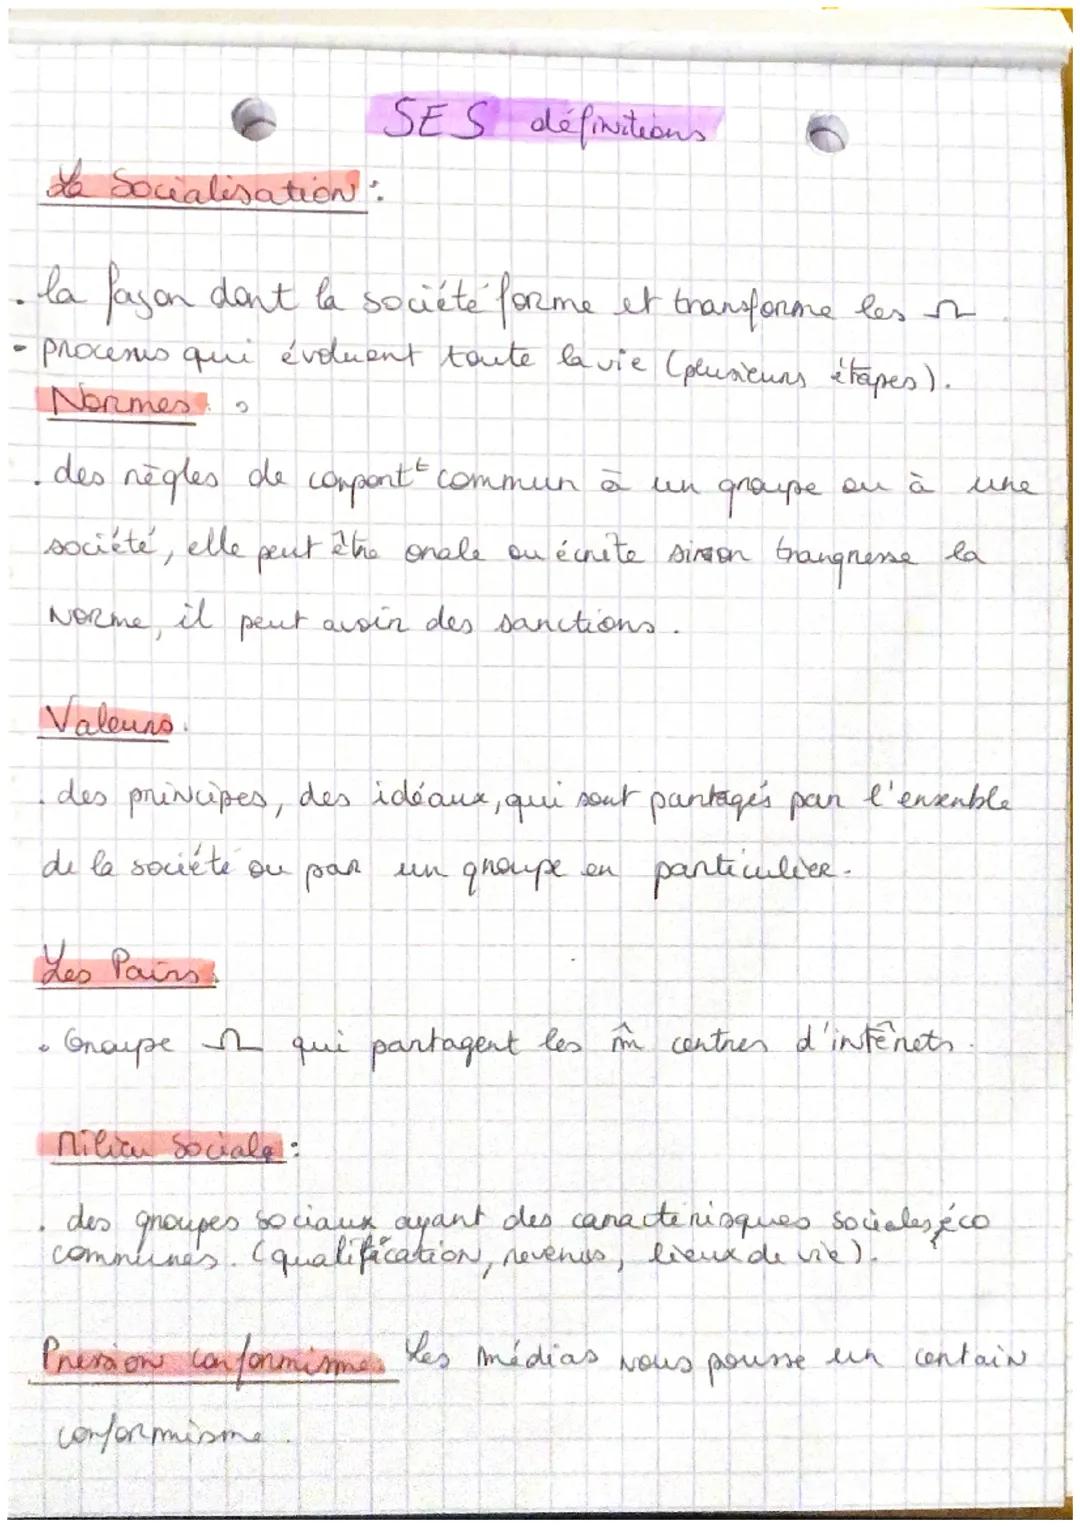 SES définitions
La Socialisation :
. la façon dont la société forme et transforme les Ω.
- processus qui évoluent toute la vie (plusieurs étapes).
Normes :
. des règles de comportᵗ commun à un groupe ou à une
société, elle peut être orale ou écrite si on trangresse la
Norme, il peut avoir des sanctions.
Valeurs.
. des principes, des idéaux, qui sont partagés par l'ensemble
de la société ou par un groupe en particulier.
Les Pairs.
. Groupe Ω qui partagent les m̂ centres d'intêrets.
Milieu Sociale :
. des groupes sociaux ayant des caractérisques sociales, éco
communes. (qualification, revenus, lieux de vie).
Pression conformisme. Les médias nous pousse un certain
conformisme.